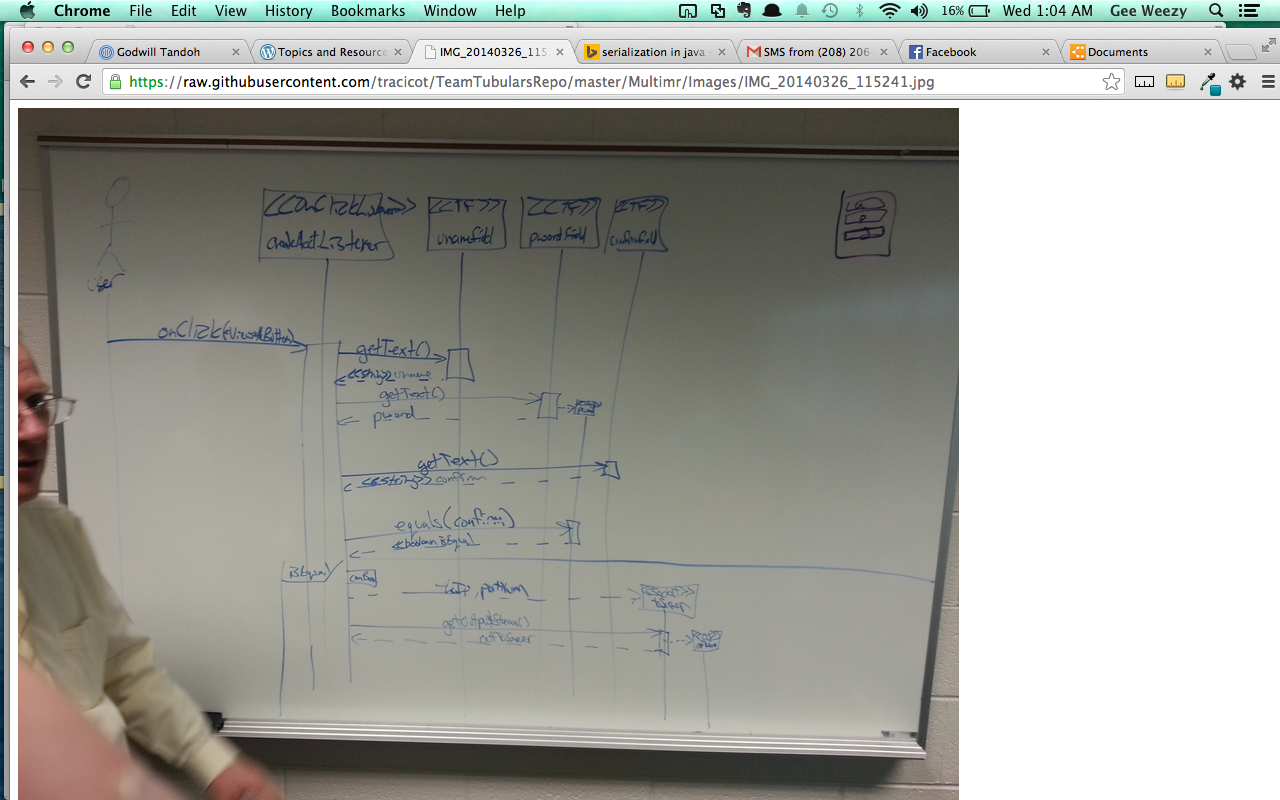 Chrome File Edit View History Bookmarks Window Help 16% Wed 1:04 AM Gee Weezy
Godwill Tandoh
Topics and Resource
IMG_20140326_115
serialization in java
SMS from (208) 206-
Facebook
Documents
https://raw.githubusercontent.com/tracicot/TeamTubularsRepo/master/Multimr/Images/IMG_20140326_115241.jpg
<<onClickListener>> <<TF>> <<TF>> <<TF>>
unamefield pwordfield confirmfield
user
getText()
<<string>> uname
getText()
pword
getText()
<<string>> confirm
equals(confirm)
isEqual
isEqual
portNum
<<Socket>>
getOutputStream()
outToServer